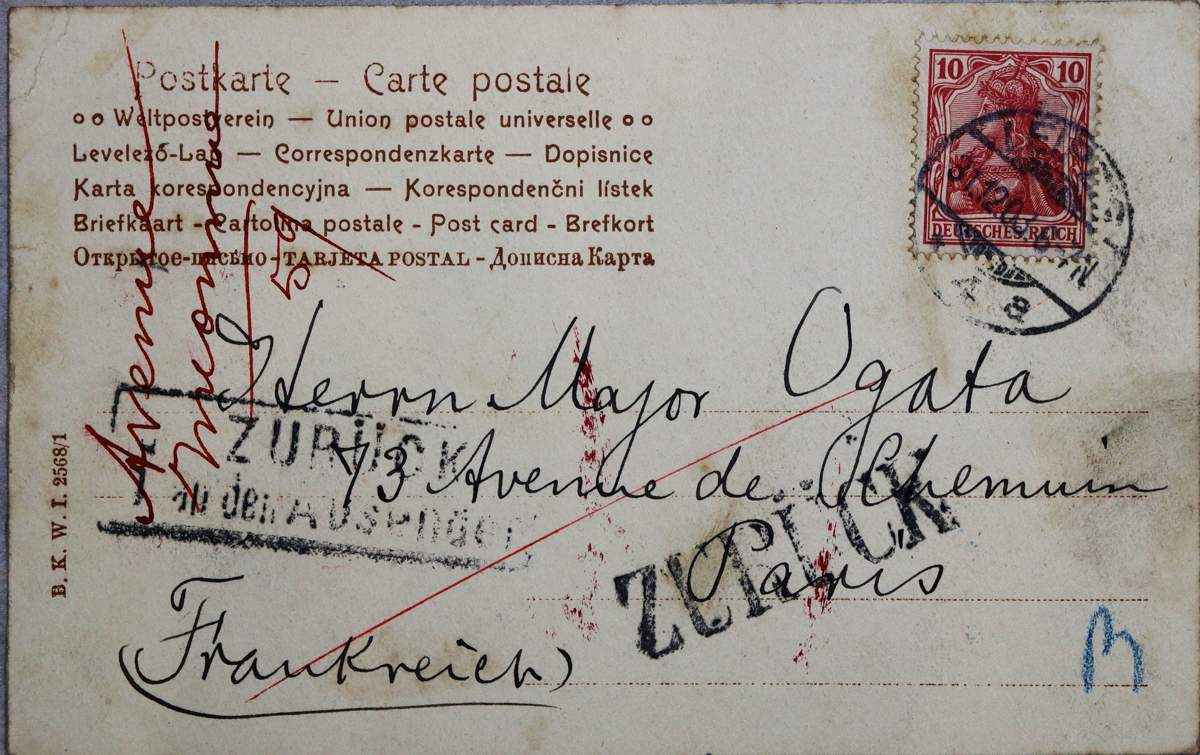 Postkarte — Carte postale
Weltpostverein — Union postale universelle
Levelező-Lap — Correspondenzkarte — Dopisnice
Karta korespondencyjna — Korespondenčni lístek
Briefkaart - Cartolina postale - Post card - Brefkort
Открытое-письмо - TARJETA POSTAL - Дописна Карта
10 10
DEUTSCHES REICH
a
Avenue
Inconnue
59
Herrn Major Ogata
73 Avenue de
Paris
(Frankreich)
ZURÜCK
an den Absender
ZURÜCK
B. K. W. I. 2568/1